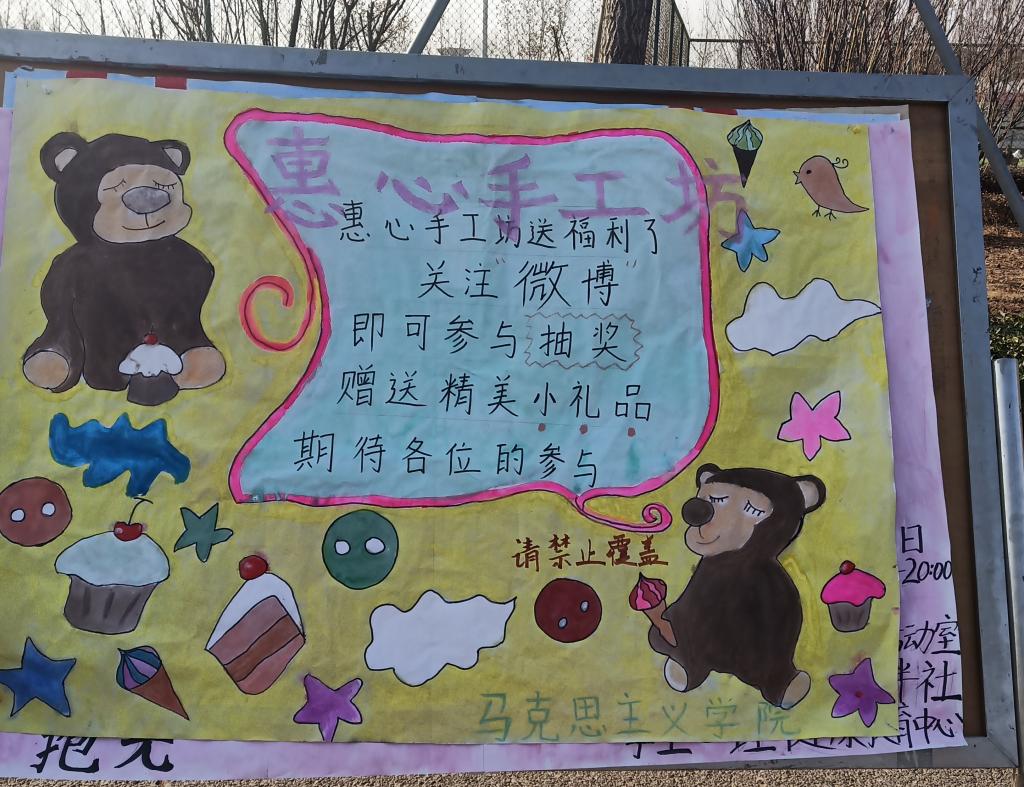 惠心手工坊
惠心手工坊送福利了
关注"微博"
即可参与抽奖
赠送精美小礼品
期待各位的参与
请禁止覆盖
马克思主义学院
日
20:00
动室
社
中心